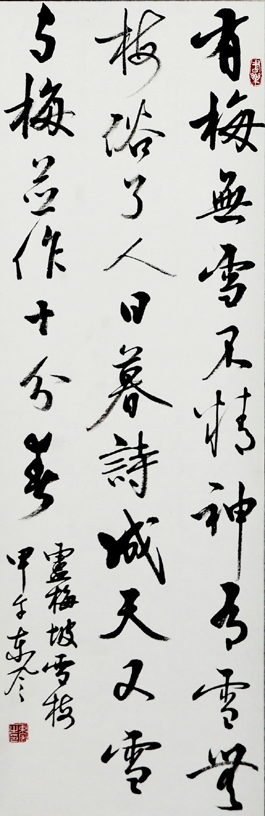 有梅無雪不精神有雪無
梅俗了人日暮詩成天又雪
与梅並作十分春
盧梅坡雪梅
甲午